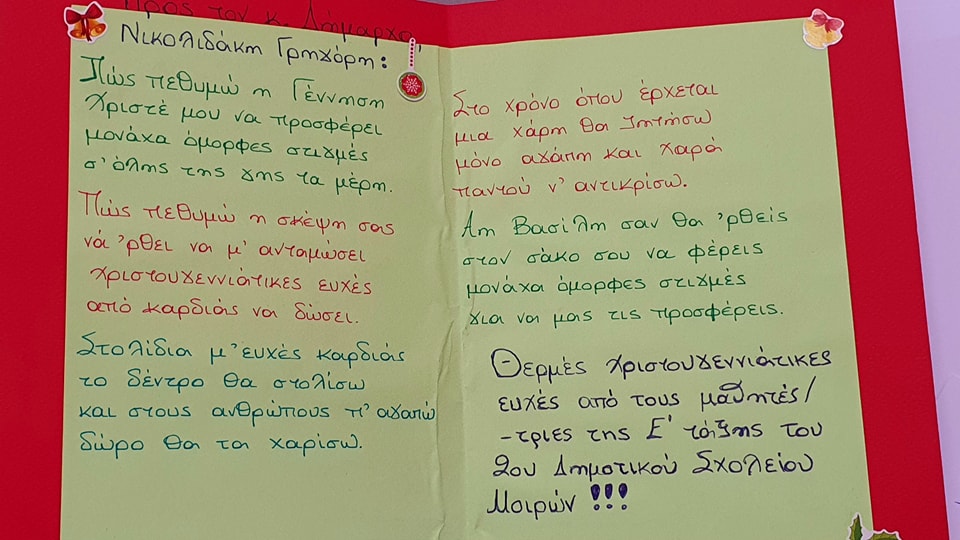 Προς τον κ. Δήμαρχο,
Νικολιδάκη Γρηγόρη:
Πώς πεθυμώ η Γέννηση
Χριστέ μου να προσφέρει
μονάχα όμορφες στιγμές
σ' όλης της γης τα μέρη.
Πώς πεθυμώ η σκέψη σας
νά 'ρθει να μ' ανταμώσει
χριστουγεννιάτικες ευχές
από καρδιάς να δώσει.
Στολίδια μ' ευχές καρδιάς
το δέντρο θα στολίσω
και στους ανθρώπους π' αγαπώ
δώρο θα τα χαρίσω.
Στο χρόνο όπου έρχεται
μια χάρη θα ζητήσω
μόνο αγάπη και χαρά
παντού ν' αντικρίσω.
Αη Βασίλη σαν θα 'ρθεις
στον σάκο σου να φέρεις
μονάχα όμορφες στιγμές
για να μας τις προσφέρεις.
Θερμές χριστουγεννιάτικες
ευχές από τους μαθητές/
-τριες της Ε' τάξης του
2ου Δημοτικού Σχολείου
Μοιρών !!!